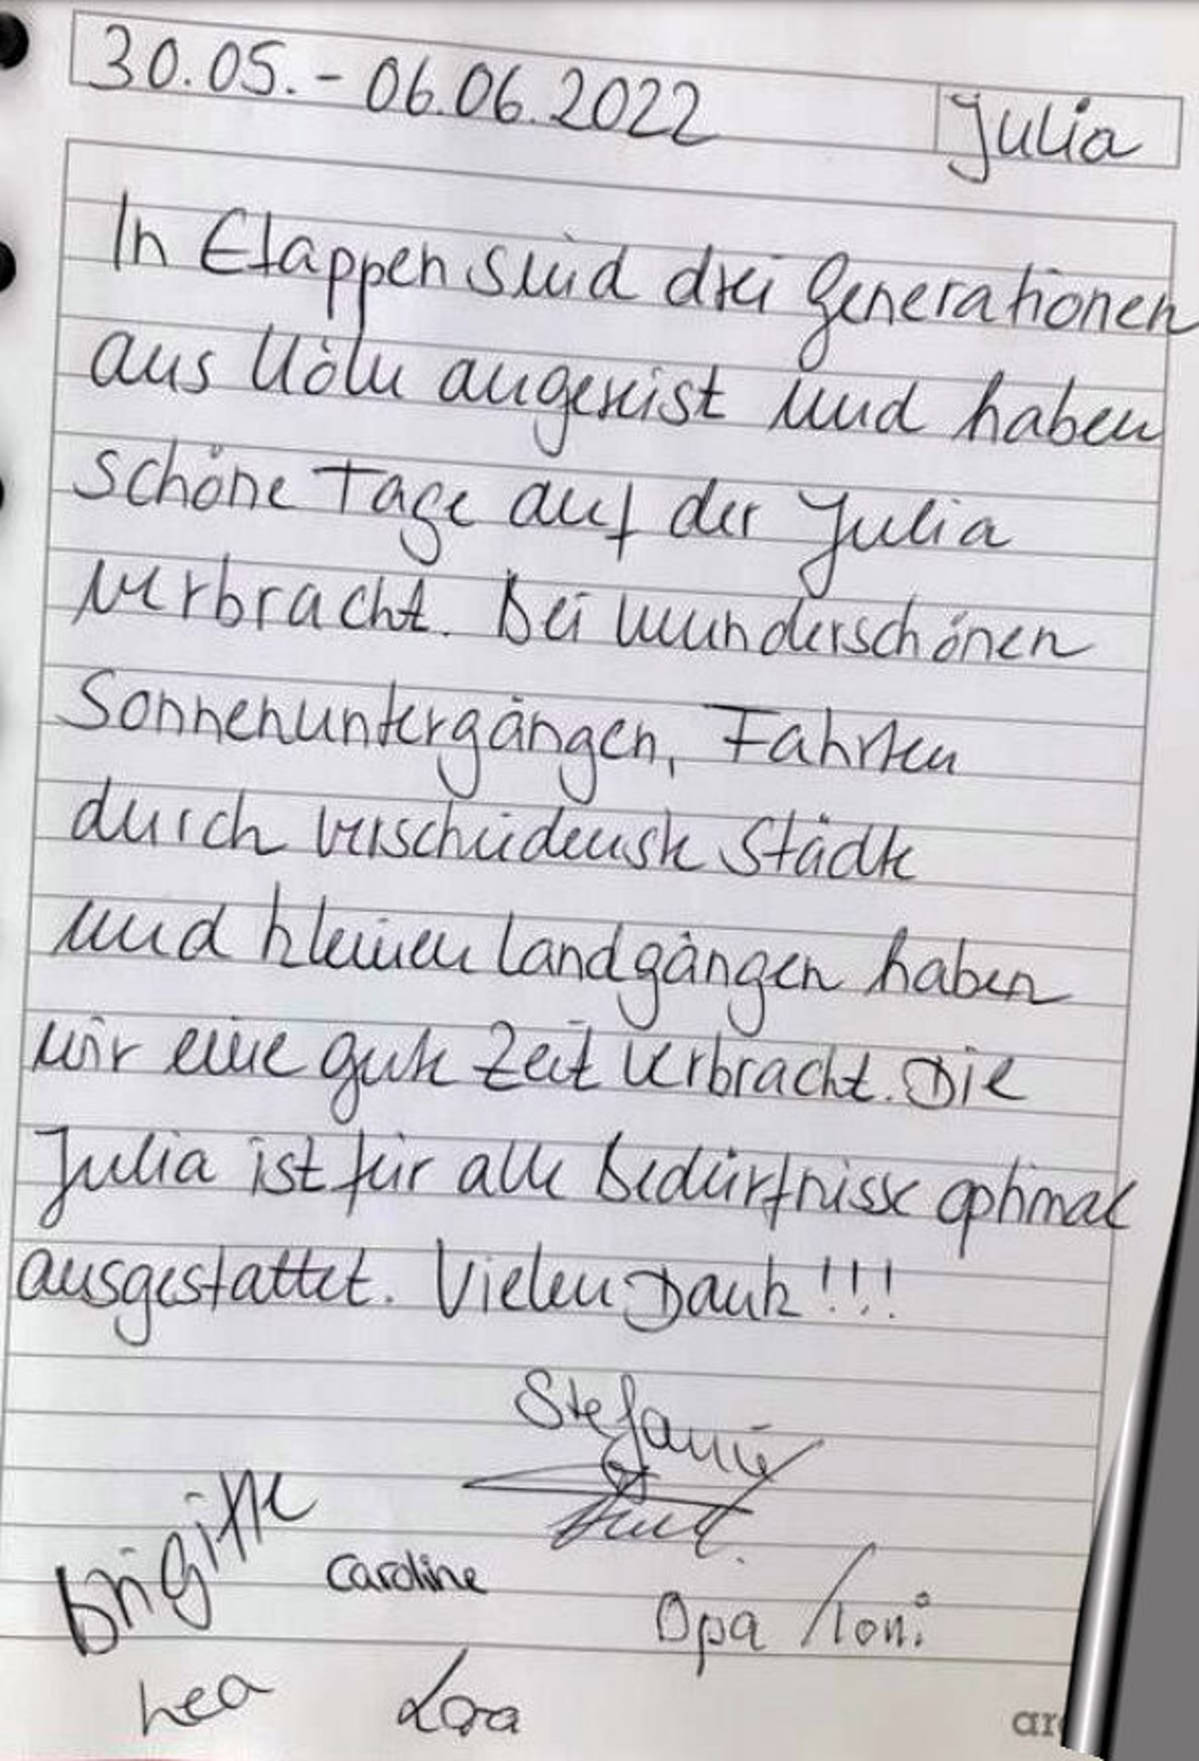 30.05. - 06.06.2022
Julia
In Etappen sind drei Generationen
aus Köln angereist und haben
schöne Tage auf der Julia
verbracht. Bei wunderschönen
Sonnenuntergängen, Fahrten
durch verschiedenste Städte
und kleinen Landgängen haben
wir eine gute Zeit verbracht. Die
Julia ist für alle Bedürfnisse optimal
ausgestattet. Vielen Dank!!!
Stefanie
Brigitte
Caroline
Opa / Toni
Lea